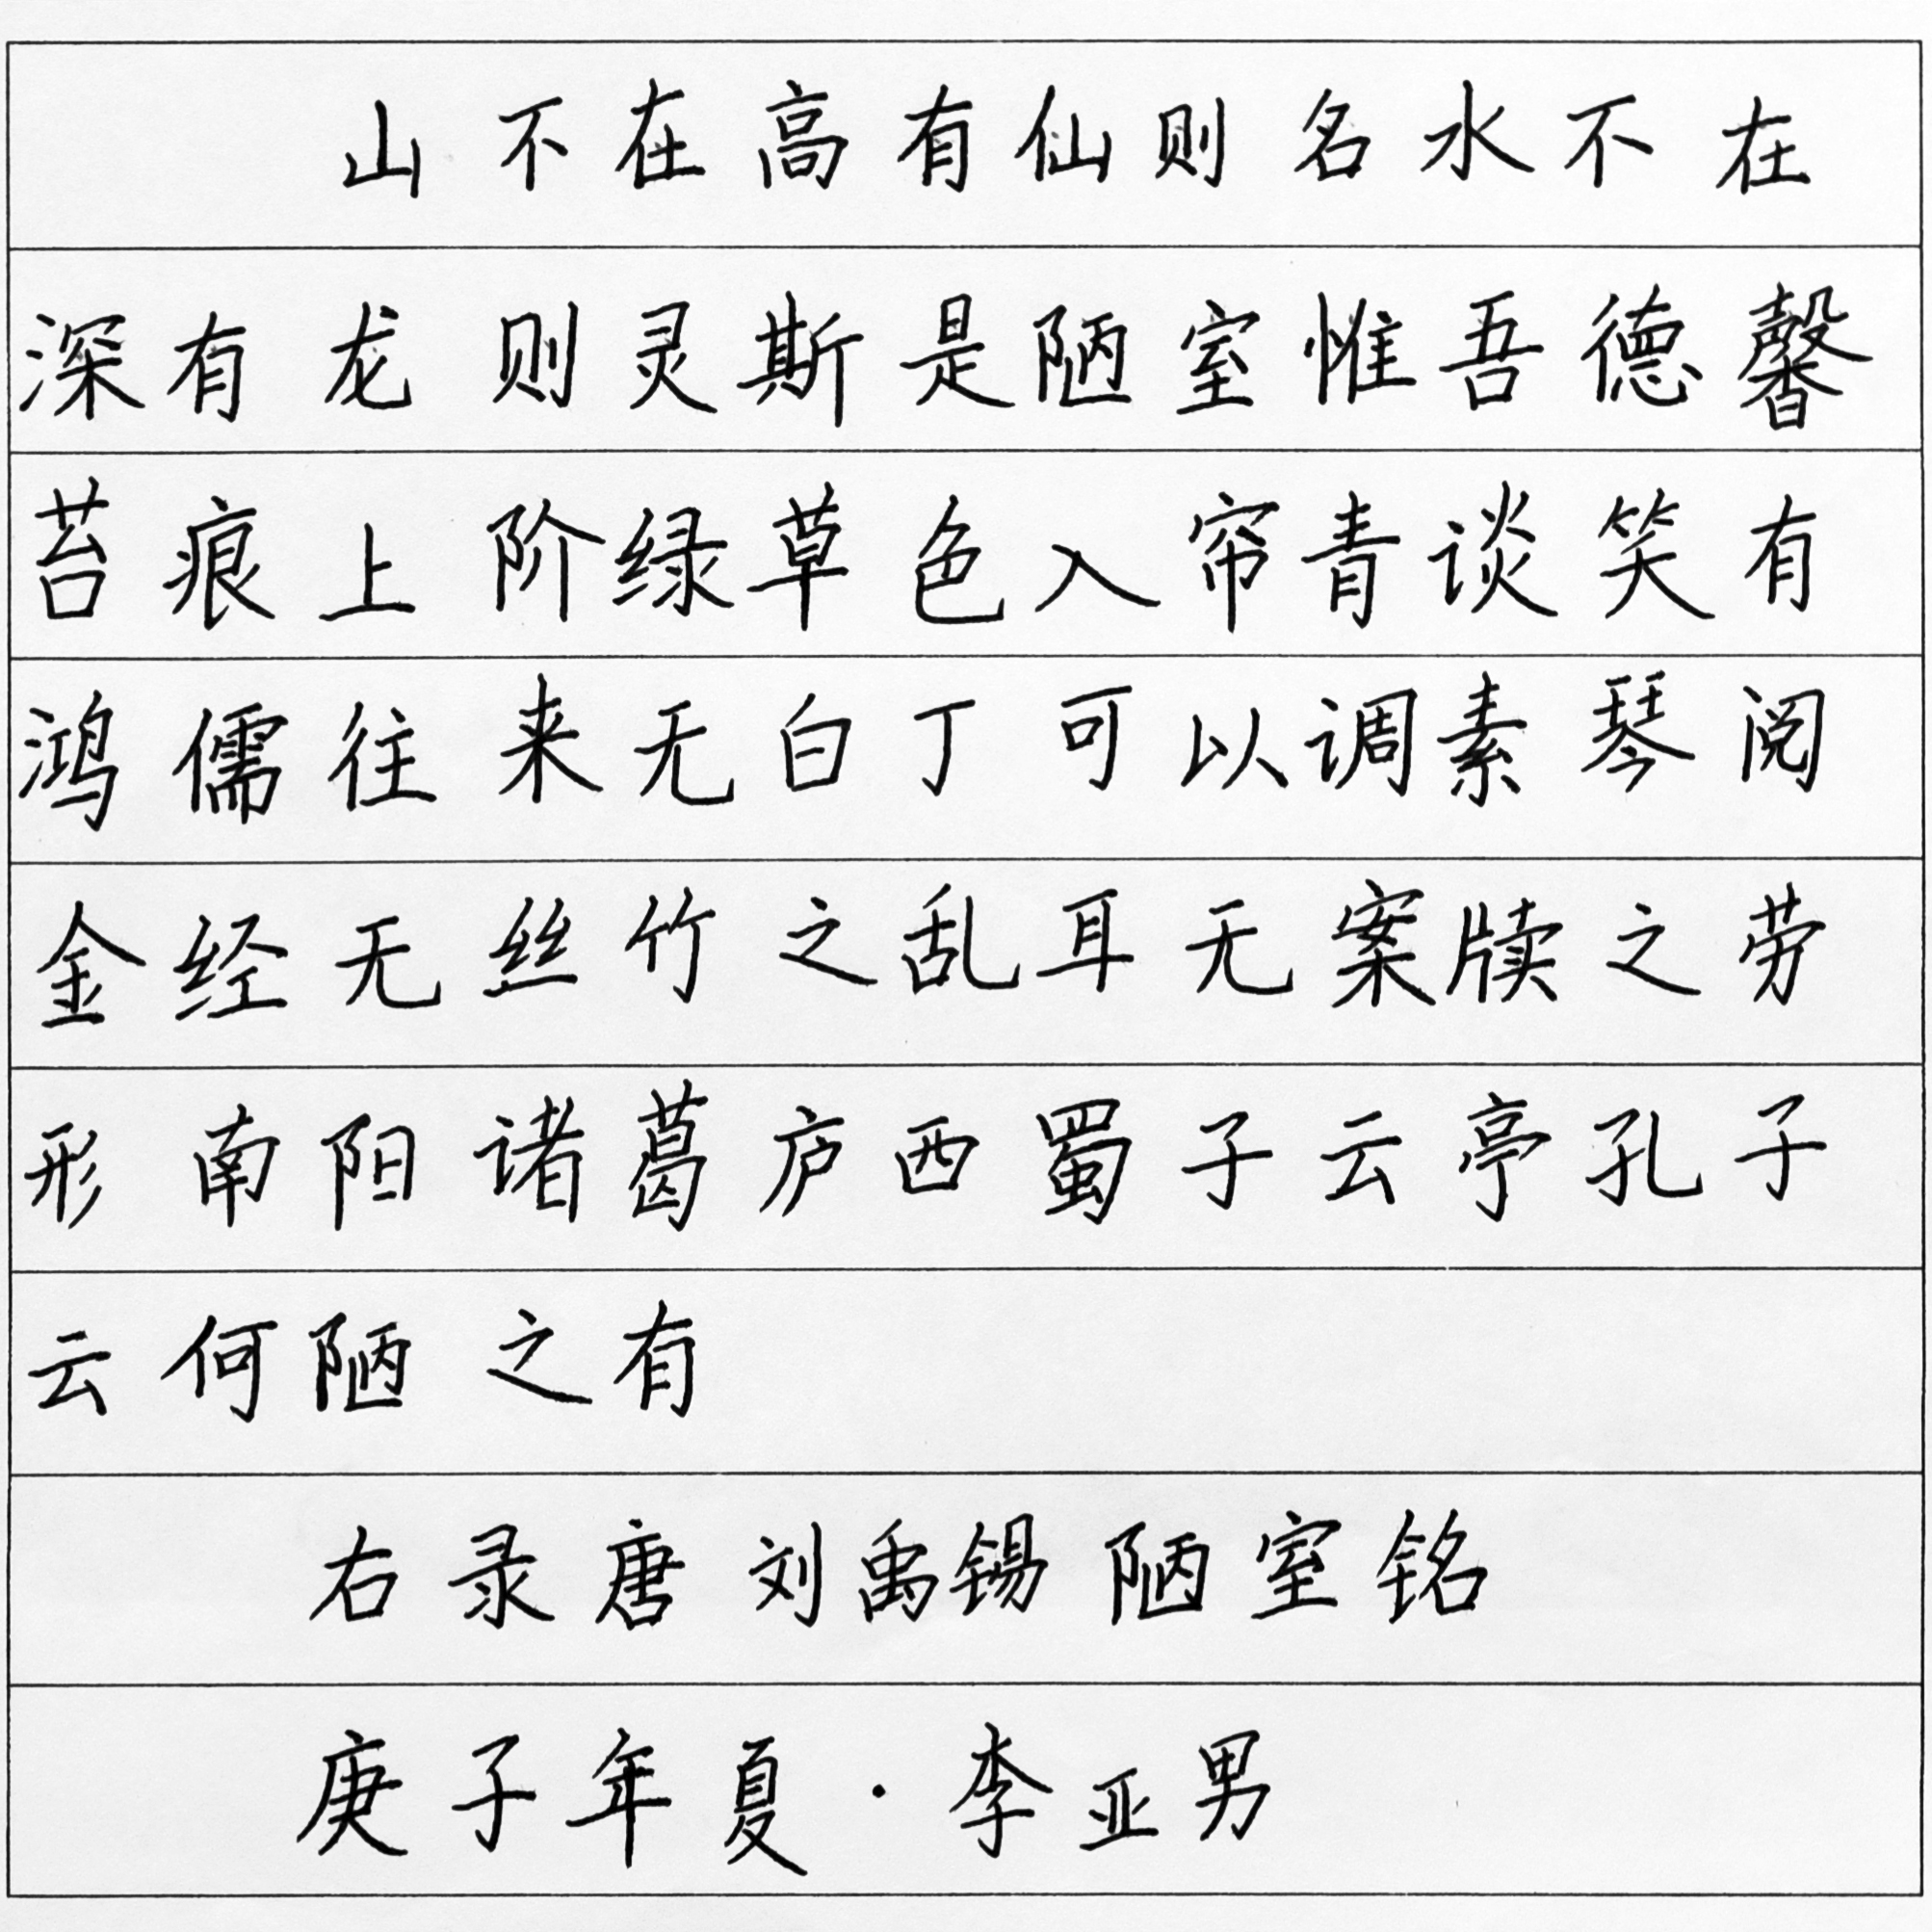 山不在高有仙则名水不在
深有龙则灵斯是陋室惟吾德馨
苔痕上阶绿草色入帘青谈笑有
鸿儒往来无白丁可以调素琴阅
金经无丝竹之乱耳无案牍之劳
形南阳诸葛庐西蜀子云亭孔子
云何陋之有
右录唐刘禹锡陋室铭
庚子年夏·李亚男